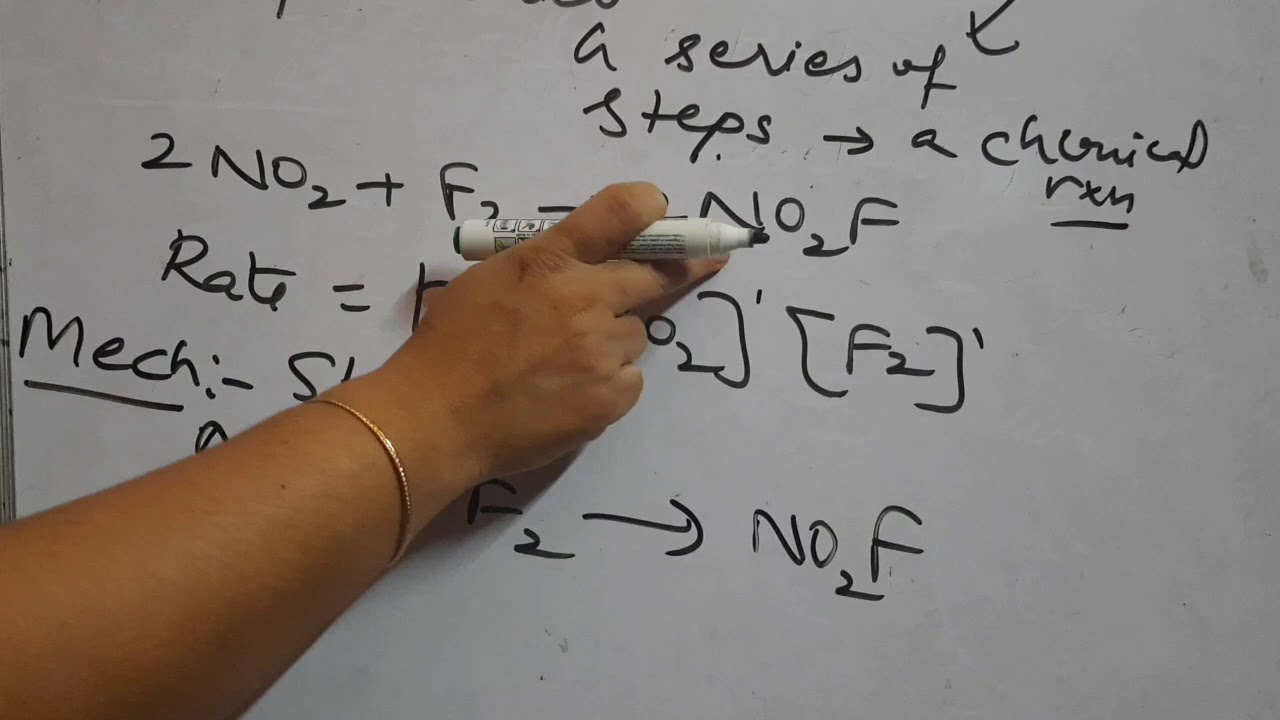 a series of
steps → a chemical
rxn
2NO₂ + F₂ – NO₂F
Rate = O₂]¹ [F₂]¹
Mech:-
F₂ → NO₂F